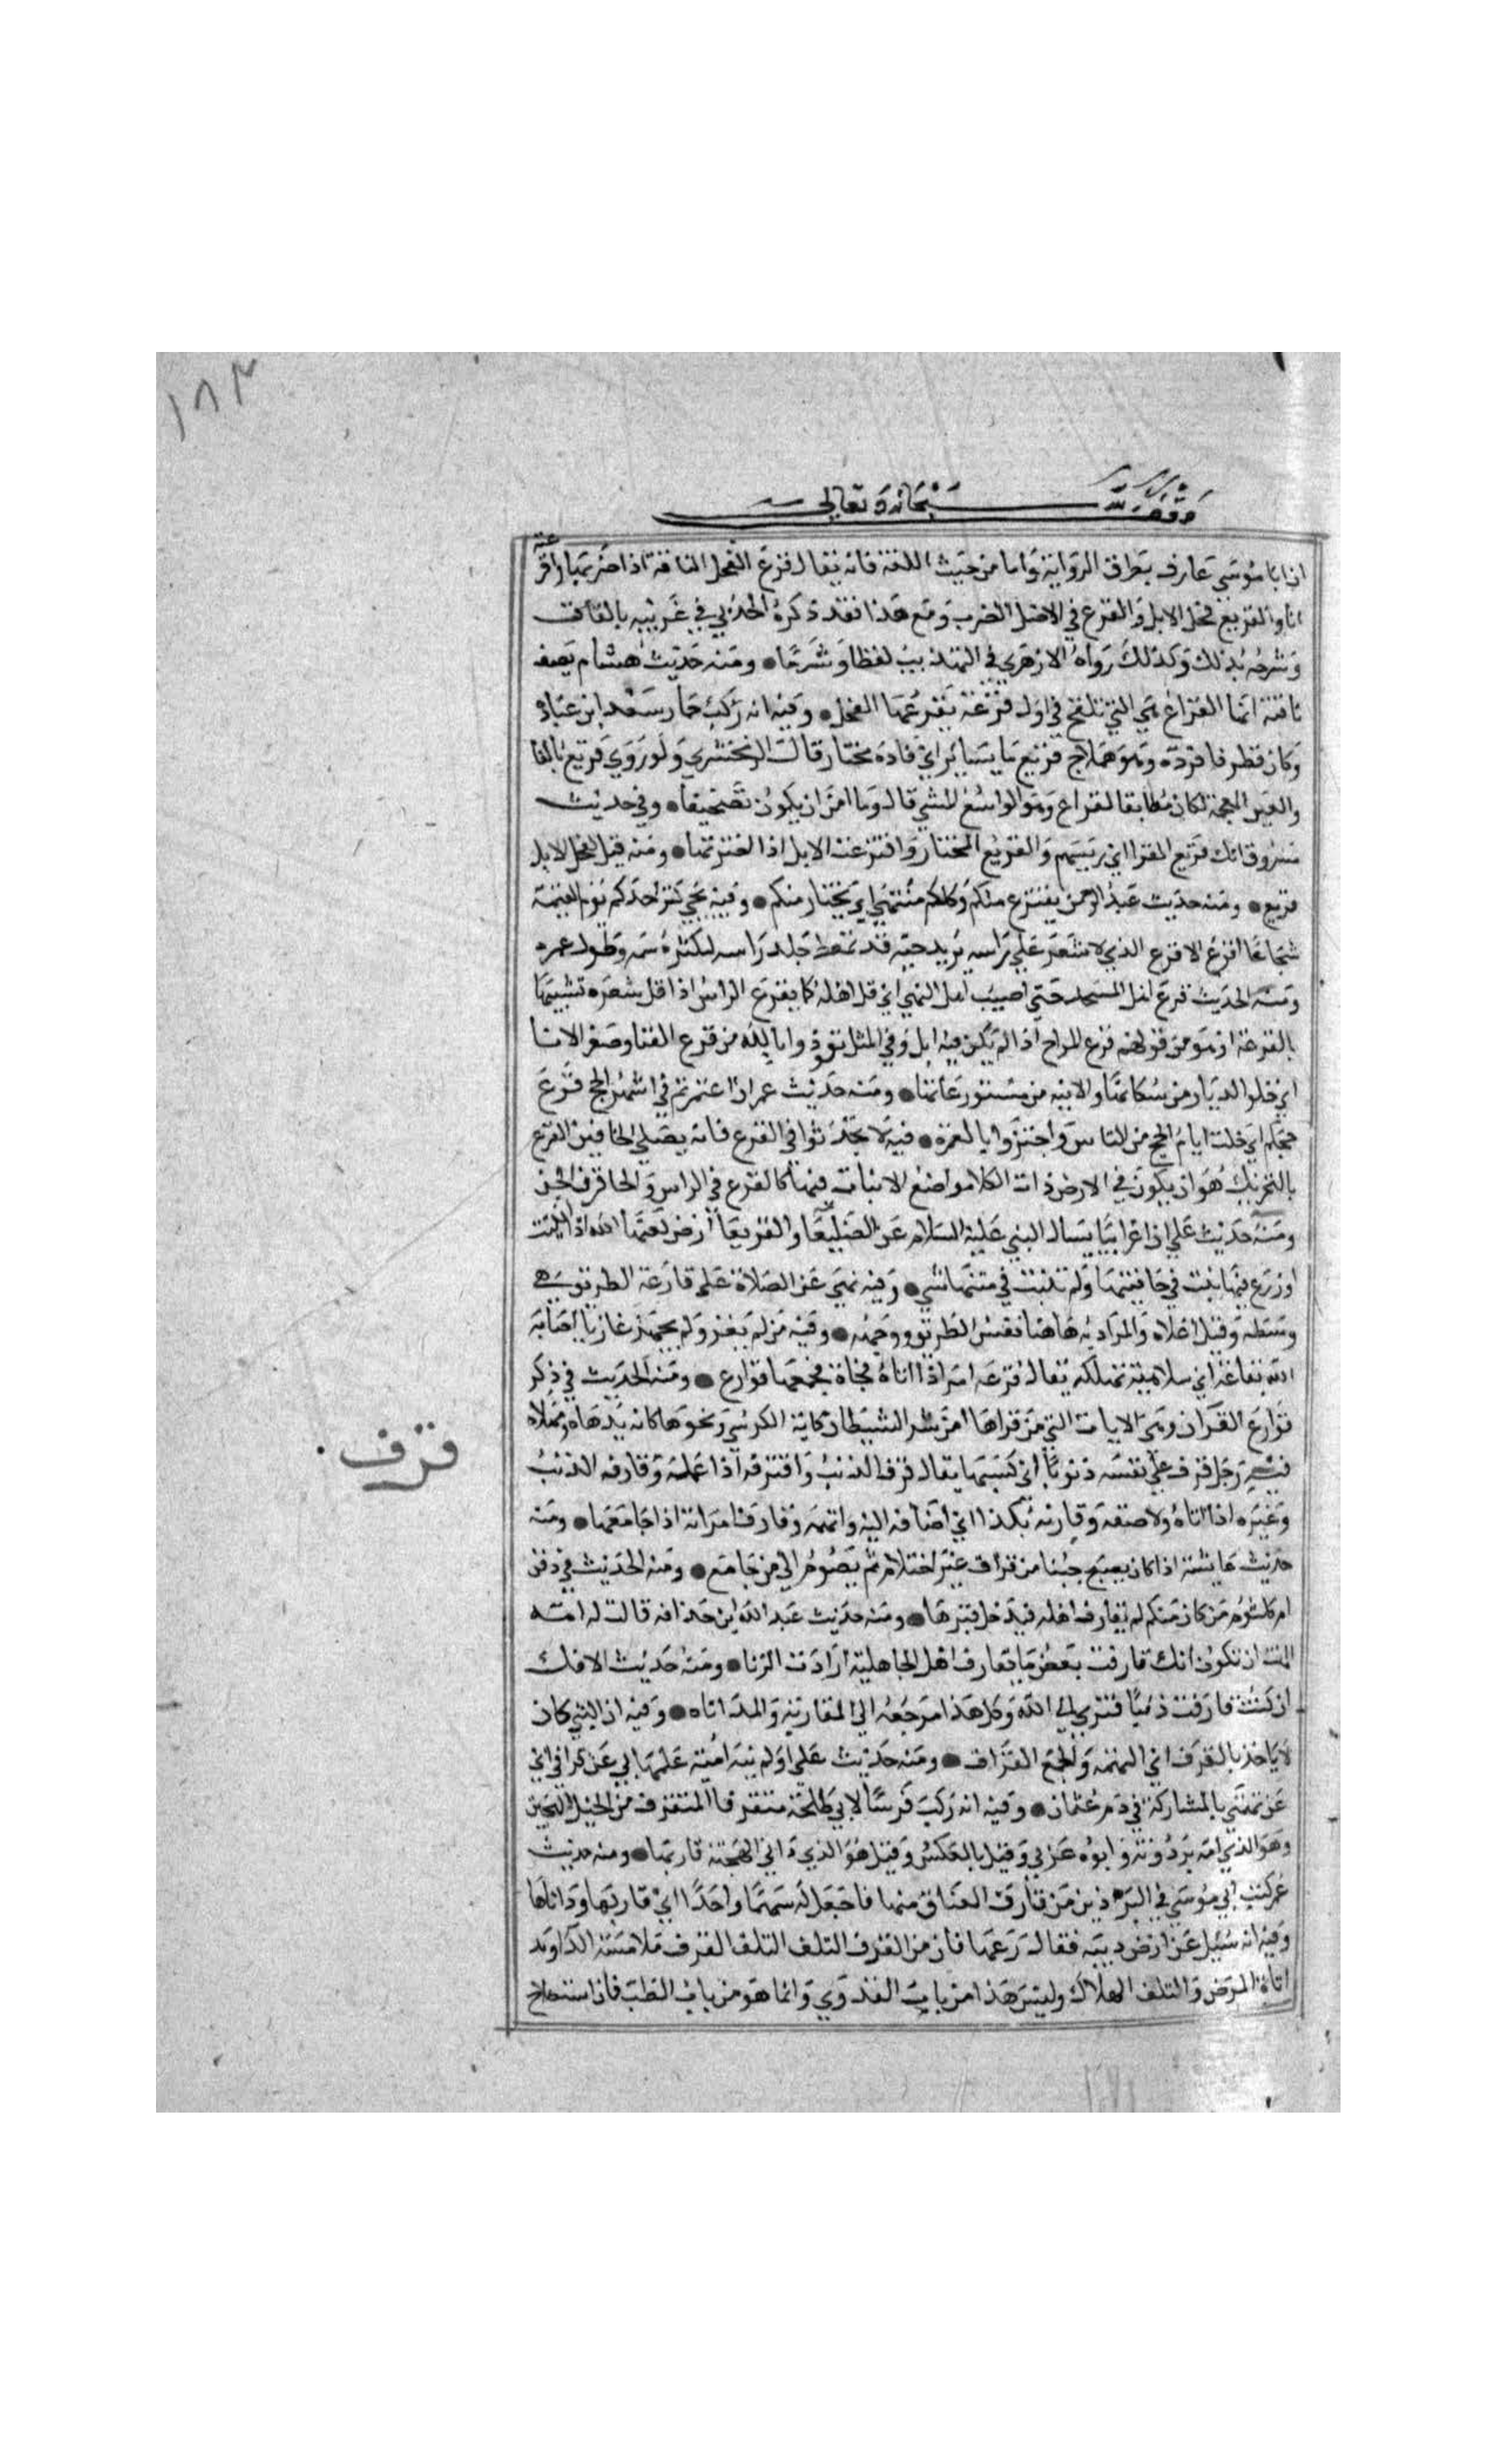 ١٨٣
وقف لله سبحانه وتعالى
ان ابا موسى عارف بطرق الرواية واما من حيث اللغة فانه يقال قرع الفحل الناقة اذا ضربها واقرعته
انا والقريع فحل الابل والقرع في الاصل الضرب ومع هذا فقد ذكره الحربي في غريبه بالقاف
وشرحه بذلك وكذلك رواه الازهري في التهذيب لفظا وشرحا ● ومنه حديث هشام يصف
ناقة انها لمقراع هي التي تلقح في اول قرعة يقرعها الفحل ● وفيه انه ركب حمار سعد ابن عبادة
وكان قطوفا فرده وهو هملاج قريع ما يساير اي فاره مختار قال الزمخشري ولو روي فريغ بالفا
والغين المعجمة لكان مطابقا لفراغ وهو الواسع المشي قال وما امن ان يكون تصحيفا ● وفي حديث
مسروق انك قريع القرا اي رييسهم والقريع المختار واقترعت الابل اذا اخترتها ● ومنه قيل لفحل الابل
قريع ● ومنه حديث عبد الرحمن يقترع منكم وكلكم منتهى اي يختار منكم ● وفيه يجي كنز احدكم يوم القيمة
شجاعا اقرع الاقرع الذي لا شعر على راسه يريد حية قد تمعط جلد راسه لكثرة سمه وطول عمره
ومنه الحديث قرع اهل المسجد حتى اصيب اهل النهر اي قل اهله كما يقرع الراس اذا قل شعره تشبيها
بالقرعة او هو من قولهم قرع المراح اذا لم يكن فيه ابل وفي المثل نعوذ بالله من قرع الفنا وصفر الانا
اي خلو الديار من سكانها والانية من مستودعاتها ● ومنه حديث عمر ان اعتمرتم في اشهر الحج قرع
حجكم اي خلت ايام الحج من الناس واجتزوا بالعمرة ● فيه لا تحدثوا في القرع فانه مصلى الخافين القرع
بالتحريك هو ان يكون في الارض ذات الكلا مواضع لا نبات فيها كالقرع في الراس والخافون الجن
ومنه حديث علي ان اعرابيا سال النبي عليه السلام عن الصليعا والقريعا ارض لعنها الله اذا انبتت
او زرع فيها نبت في حافتيها ولم ينبت في متنها شي ● وفيه نهى عن الصلاة على قارعة الطريق هي
وسطه وقيل اعلاه والمراد به هاهنا نفس الطريق ووجهه ● وفيه من لم يغز ولم يجهز غازيا اصابه
الله بقارعة اي بداهية تهلكه يقال قرعه امر اذا اتاه فجاة وجمعها قوارع ● ومنه الحديث في ذكر
قوارع القران وهي الايات التي من قراها امن شر الشيطان كاية الكرسي ونحوها كانه تدهاه وتهلكه
قرف ·
فيه رجل قرف على نفسه ذنوبا اي كسبها يقال قرف الذنب واقترفه اذا عمله وقارف الذنب
وغيره اذا داناه ولاصقه وقرفه بكذا اي اضافه اليه واتهمه وقارف امراته اذا جامعها ● ومنه
حديث عايشة اذا كان يصبح جنبا من قراف غير احتلام ثم يصوم اي من جماع ● ومنه الحديث في دفن
ام كلثوم من كان منكم لم يقارف اهله فيدخل قبرها ● ومنه حديث عبد الله ابن حذافة قالت له امه
امنت ان تكون امك قارفت بعض ما يقارف اهل الجاهلية ارادت الزنا ● ومنه حديث الافك
ان كنت قارفت ذنبا فتوبي الى الله وكل هذا مرجعه الى المقاربة والمداناه ● وفيه ان النبي كان
لا ياخذ بالقرف اي التهمة والجمع القراف ● ومنه حديث علي اولم ينه امية علمها بي عن قرافي اي
عن تهمتي بالمشاركة في دم عثمان ● وفيه انه ركب فرسا لابي طلحة مقرفا المقرف من الخيل الهجين
وهو الذي امه برذونة وابوه عربي وقيل بالعكس وقيل هو الذي دانى الهجنة قاربها ● ومنه حديث
عمر كتب الى ابي موسى في البراذين من قارف العتاق منها فاجعل له سهما واحدا اي قاربها وداناها
وفيه انه سيل عن ارض وبية فقال دعها فان من القرف التلف القرف ملامسة الدا ومد
اناة المرض والتلف الهلاك وليس هذا من باب العدوى وانما هو من باب الطب فان استصلاح